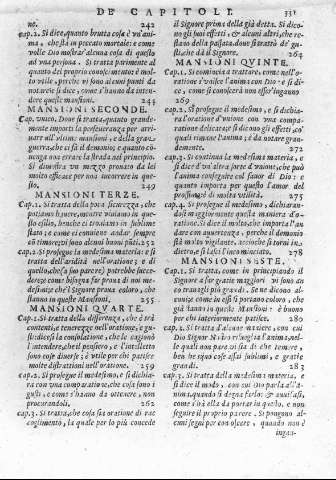 DE CAPITOLI. 331
no. 242
cap.2. Si dice, quanto brutta cosa è vn'ani-
ma, che stà in peccato mortale: e come
volle Dio mostrar' alcuna cosa di questo
ad vna persona. Si tratta parimente al
quanto del proprio conoscimento: è mol
to vtile, perche vi sono alcuni punti da
notarsi: e si dice, come s'hanno da inten-
dere queste mansioni. 244
MANSIONI SECONDE.
Cap. vnico. Doue si tratta, quanto grande-
mente importi la perseueranza per arri-
uare all' vltime mansioni, e della gran
guerra, che ci fa il demonio; e quanto con-
uenga non errare la strada nel principio.
Si dimostra vn mezzo prouato da lei
molto efficace per non incorrere in que-
sto. 249
MANSIONI TERZE.
Cap.1. Si tratta della poca sicurezza, che
potiamo hauere, mentre viuiamo in que-
sto esilio, benche ci trouiamo in sublime
stato: e come ci conuiene andar sempre
cō timore: vi sono alcuni buoni pūti. 252
Cap.2. Si prosegue la medesima materia: e si
tratta dell'aridità nell'oratione; e di
quello, che (a suo parere) potrebbe succe-
dere: e come bisogna far proua di noi me-
desimi: e che'l Signore proua coloro, che
stanno in queste Mansioni. 255
MANSIONI QVARTE.
Cap.1. Si tratta della differenza, che è trà
contenti, e tenerezze nell'oratione, e gu-
sti: dice si la consolatione, che le cagionò
l'intendere, che'l pensiero, e l'intelletto
sono cose diuerse: è vtile per chi patisce
molte distrattioni nell'oratione. 259
cap.2. Si prosegue il medesimo, e si dichia-
ra con vna comparatione, che cosa sono i
gusti, e come s'hanno da ottenere, non
procurandoli. 262
cap.3. Si tratta, che cosa sia oratione di rac
coglimento, la quale per lo più concede
il Signore prima della già detta. Si dico-
no gli suoi effetti, & alcuni altri, che re-
stano della passata, doue si trattò de' gu-
sti, che dà il Signore. 264
MANSIONI QVINTE.
Cap.1. Si comincia a trattare, come nell'o-
ratione s'vnisce l'anima con Dio: e si di-
ce, come si conoscerà non esser'inganno
269
cap.2. Si prosegue il medesimo, e si dichia-
ra l'oratione d'vnione con vna compa-
ratione delicata: e si dicono gli effetti, co'
quali rimane l'anima; è da notare gran-
demente. 272
cap.3. Si continua la medesima materia, e
si dice d'vn'altra sorte d'vnione, che può
l'anima conseguire col fauor di Dio: e
quanto importa per questo l'amor del
prossimo: è di molta vtilità. 275
cap.4. Si prosegue il medesimo, dichiaran-
dosi maggiormente questa maniera d'o-
ratione. Si dice il molto, che importa l'an-
dare con auuertenza, perche il demonio
stà molto vigilante, accioche si torni in-
dietro, e si lasci l'incominciato. 278
MANSIONI SESTE.
Cap.1. Si tratta, come in principiando il
Signore a far gratie maggiori vi sono an
co trauagli più grandi. Se ne dicono al-
cuni: e come in essi si portano coloro, che
già stanno in queste Mansioni: è buono
per chi interiormente patisce. 280
cap.2. Si tratta d'alcune maniere, con cui
Dio Signor Nostro risueglia l'anima, nel-
le quali non pare vi sia di che temere,
ben che siano cose assai sublimi, e gratie
grandi. 283
cap.3. Si tratta della medesima materia, e
si dice il modo, con cui Dio parla all'a-
nima, quando si degna farlo: & auuisasi,
come s'hà ella da portar in questo, e non
seguire il proprio parere. Si pongono al-
cuni segni per conoscere, quando non è
ingan-